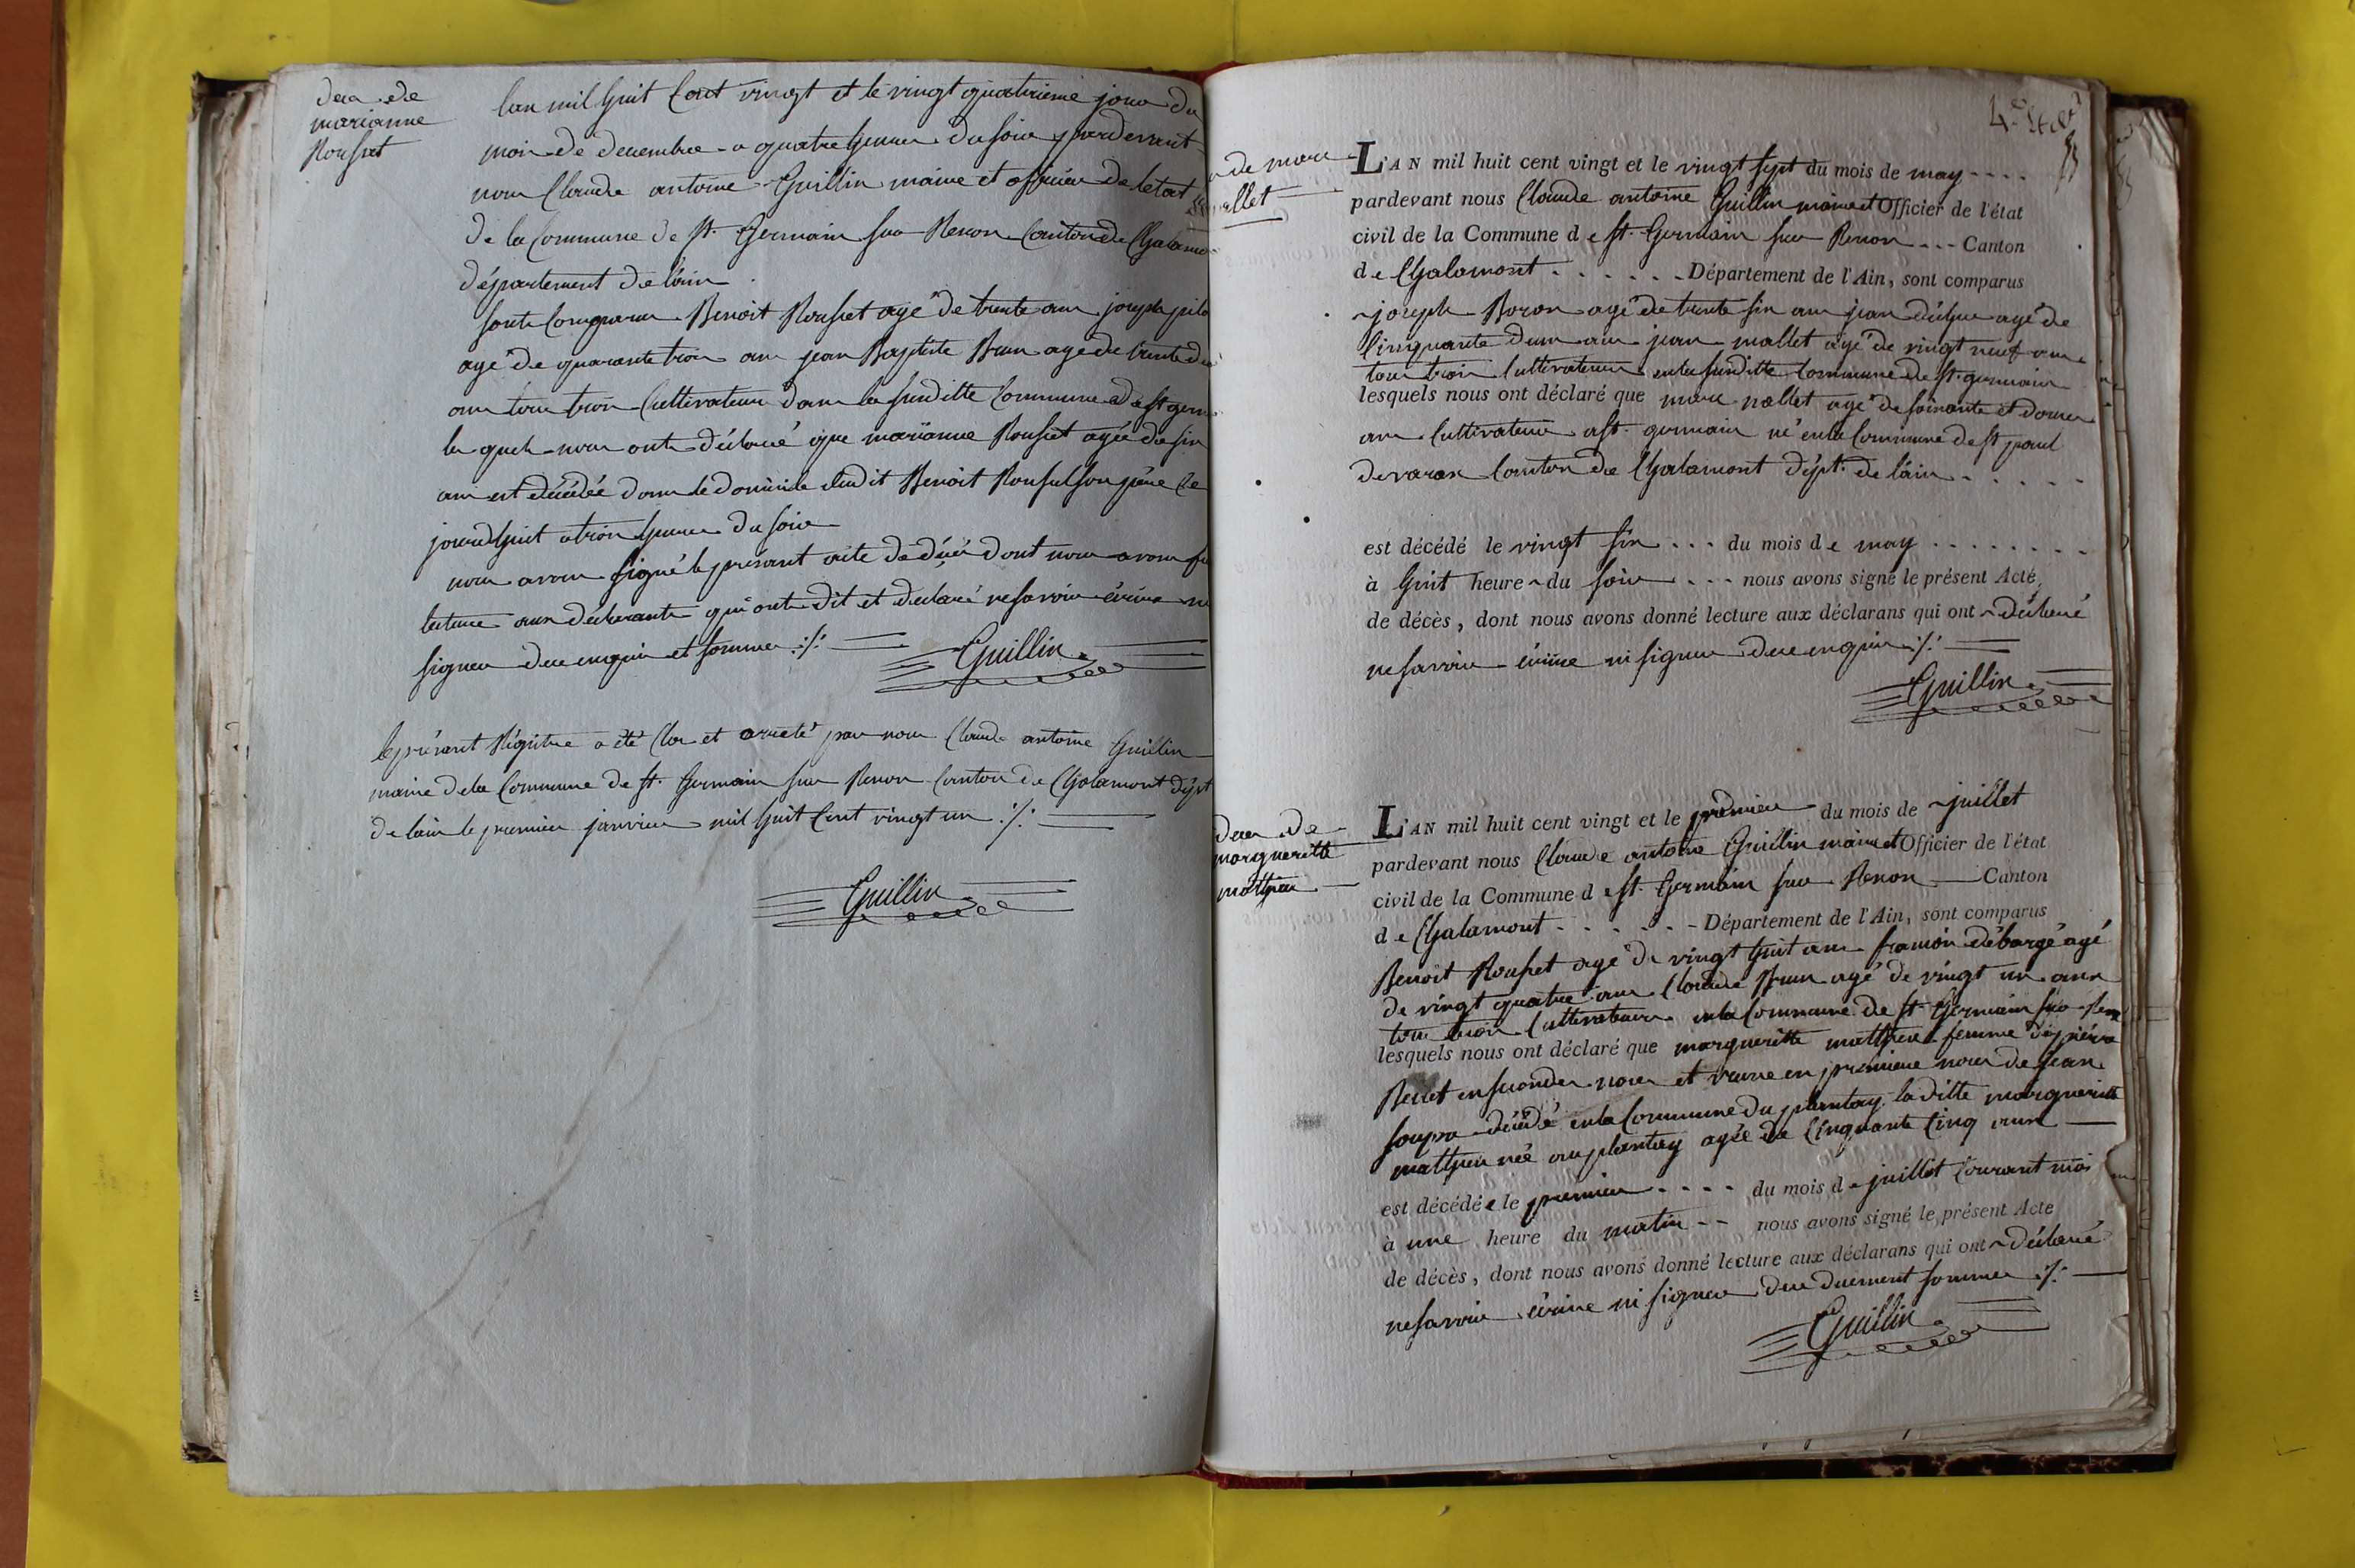 deces de
marianne
Rousset
lan mil huit Cent vingt et le vingt quatrieme jour du
mois de decembre a quatre heures du soir pardevant
nous Claude antoine Guillin maire et officier de letat
de la Commune de St. Germain sur Renon Canton de Chalamo
département de lain
sont Comparus Benoit Rousset agé de trente ans joseph
agé de quarante trois ans jean Baptiste Brun agé de trente
ans tous trois Cultivateurs dans la susditte Commune de St germ
les quels nous ont déclaré que marianne Rousset agée de six
ans est décédée dans le domicile dudit Benoit Rousset son père Ce
jourdhuit a trois heures du soir
nous avons signé le présent acte de décès dont nous avons
lecture aux déclarants qui ont dit et declaré ne savoir écrire
signer de ce enquis et sommes ·/·
Guillin
le présent Régistre a été Clos et arreté par nous Claude antoine Guillin
maire de la Commune de St. Germain sur Renon Canton de Chalamont dépt
de lain le premier janvier mil huit Cent vingt un ·/·
Guillin
de marc
L'AN mil huit cent vingt et le vingt sept du mois de may
pardevant nous Claude antoine Guillin maire et Officier de l'état
civil de la Commune de St. Germain sur Renon Canton
de Chalamont Département de l'Ain, sont comparus
joseph Boron agé de trente six ans jean agé de
Cinquante d'un ans jean mallet agé de vingt neuf ans
tous trois Cultivateurs en la susditte Commune de St. germain
lesquels nous ont déclaré que marc mallet agé de soixante et douze
ans Cultivateur a St. germain né en la Commune de St paul
de varax Canton de Chalamont dépt. de lain
est décédé le vingt six du mois de may
à huit heures du soir nous avons signé le présent Acte
de décès, dont nous avons donné lecture aux déclarans qui ont déclaré
ne savoir écrire ni signer de ce enquis ·/·
Guillin
deces de
margueritte
mathieu
L'AN mil huit cent vingt et le premier du mois de juillet
pardevant nous Claude antoine Guillin maire et Officier de l'état
civil de la Commune de St. Germain sur Renon Canton
de Chalamont Département de l'Ain, sont comparus
Benoit Rousset agé de vingt huit ans francois débargé agé
de vingt quatre ans Claude Brun agé de vingt un ans
tous trois Cultivateurs en la Commune de St. Germain sur Renon
lesquels nous ont déclaré que margueritte mathieu femme de pierre
en secondes noces et veuve en premiere noces de jean
décédé en la Commune du plantay la ditte marguerite
mathieu née au plantay agée de Cinquante Cinq ans
est décédée le premier du mois de juillet Courant mois
à une heure du matin nous avons signé le présent Acte
de décès, dont nous avons donné lecture aux déclarans qui ont déclaré
ne savoir écrire ni signer de ce duement sommes ·/·
Guillin